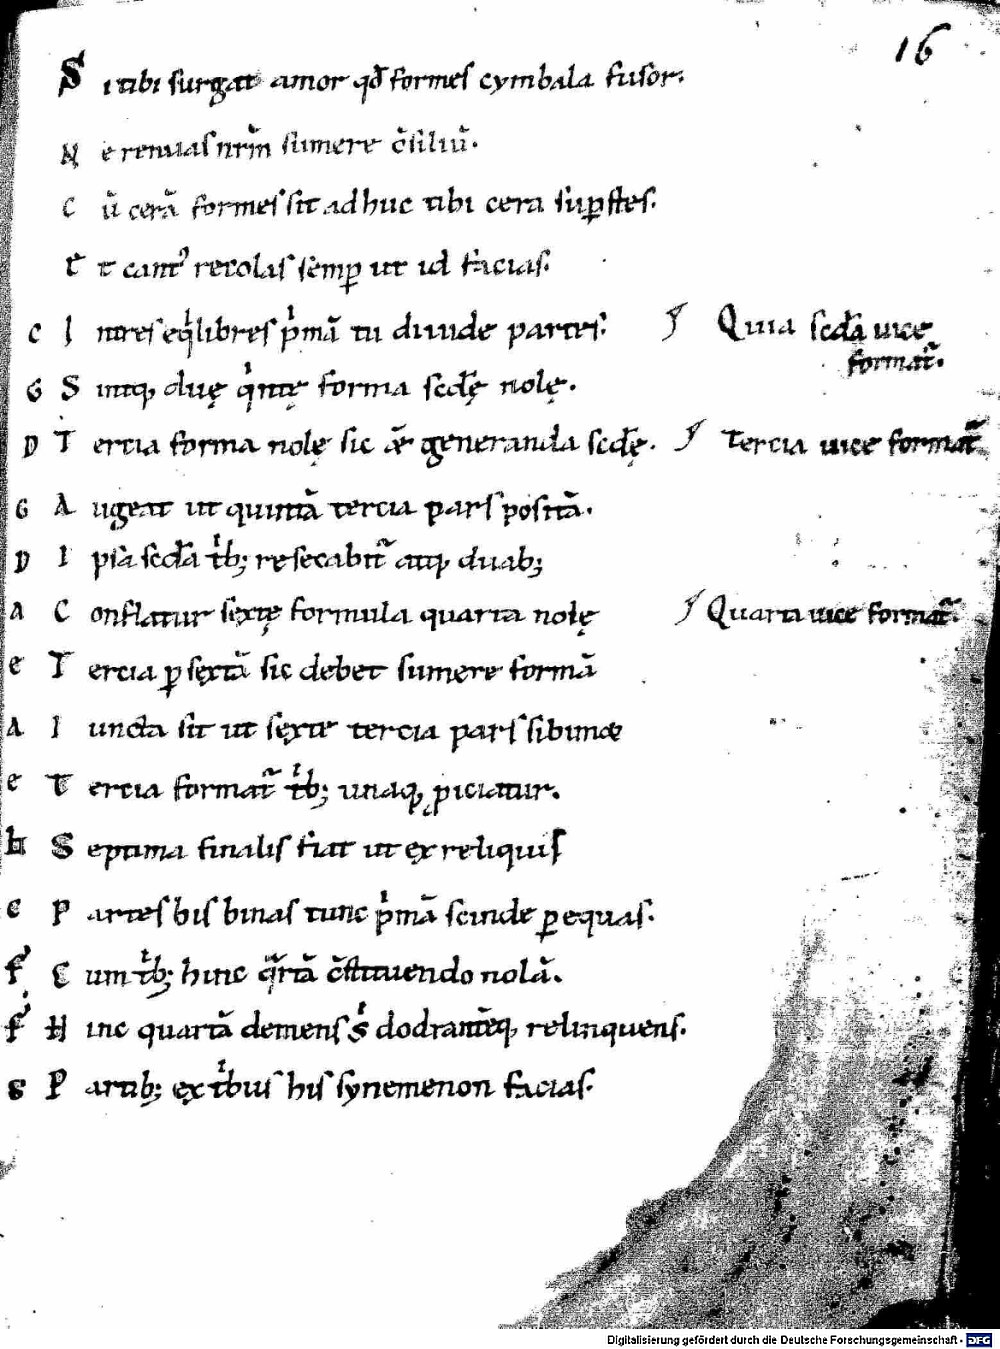 16
S i tibi surgat amor qđ formes cymbala fusor.
N e renuas nrm̄ sumere c̄siliū.
C ū cerā formes sit adhuc tibi cera sup̲stes.
E t cant᾿ recolas semp̲ ut id facias.
C I n tres eqͥlibres pͥmā tu diuide partes. Quia scđa uice
format̄.
G S intq; duę qͥntę forma scđę nolę.
D T ercia forma nolę sic ē generanda scđę. Tercia uice format̄
G A ugeat ut quintā tercia pars positā.
D I psa scđa tͥb; resecabit̄ atq; duab;
A C onflatur sextę formula quarta nolę Quarta uice format̄.
E T ercia p̲ sextā sic debet sumere formā
A I uncta sit ut sexte tercia pars sibimet
E T ercia format̄ tͥb; unaq; p̲iciatur.
h S eptima finalis fiat ut ex reliquis
E P artes bis binas tunc pͥmā scinde p̲ equas.
F C um tͥb; hinc qͣrtā c̄stituendo nolā.
F H inc quartā demens sͥ dodrantēq; relinquens.
S P artib; ex tͥbus his synemenon facias.
Digitalisierung gefördert durch die Deutsche Forschungsgemeinschaft - DFG